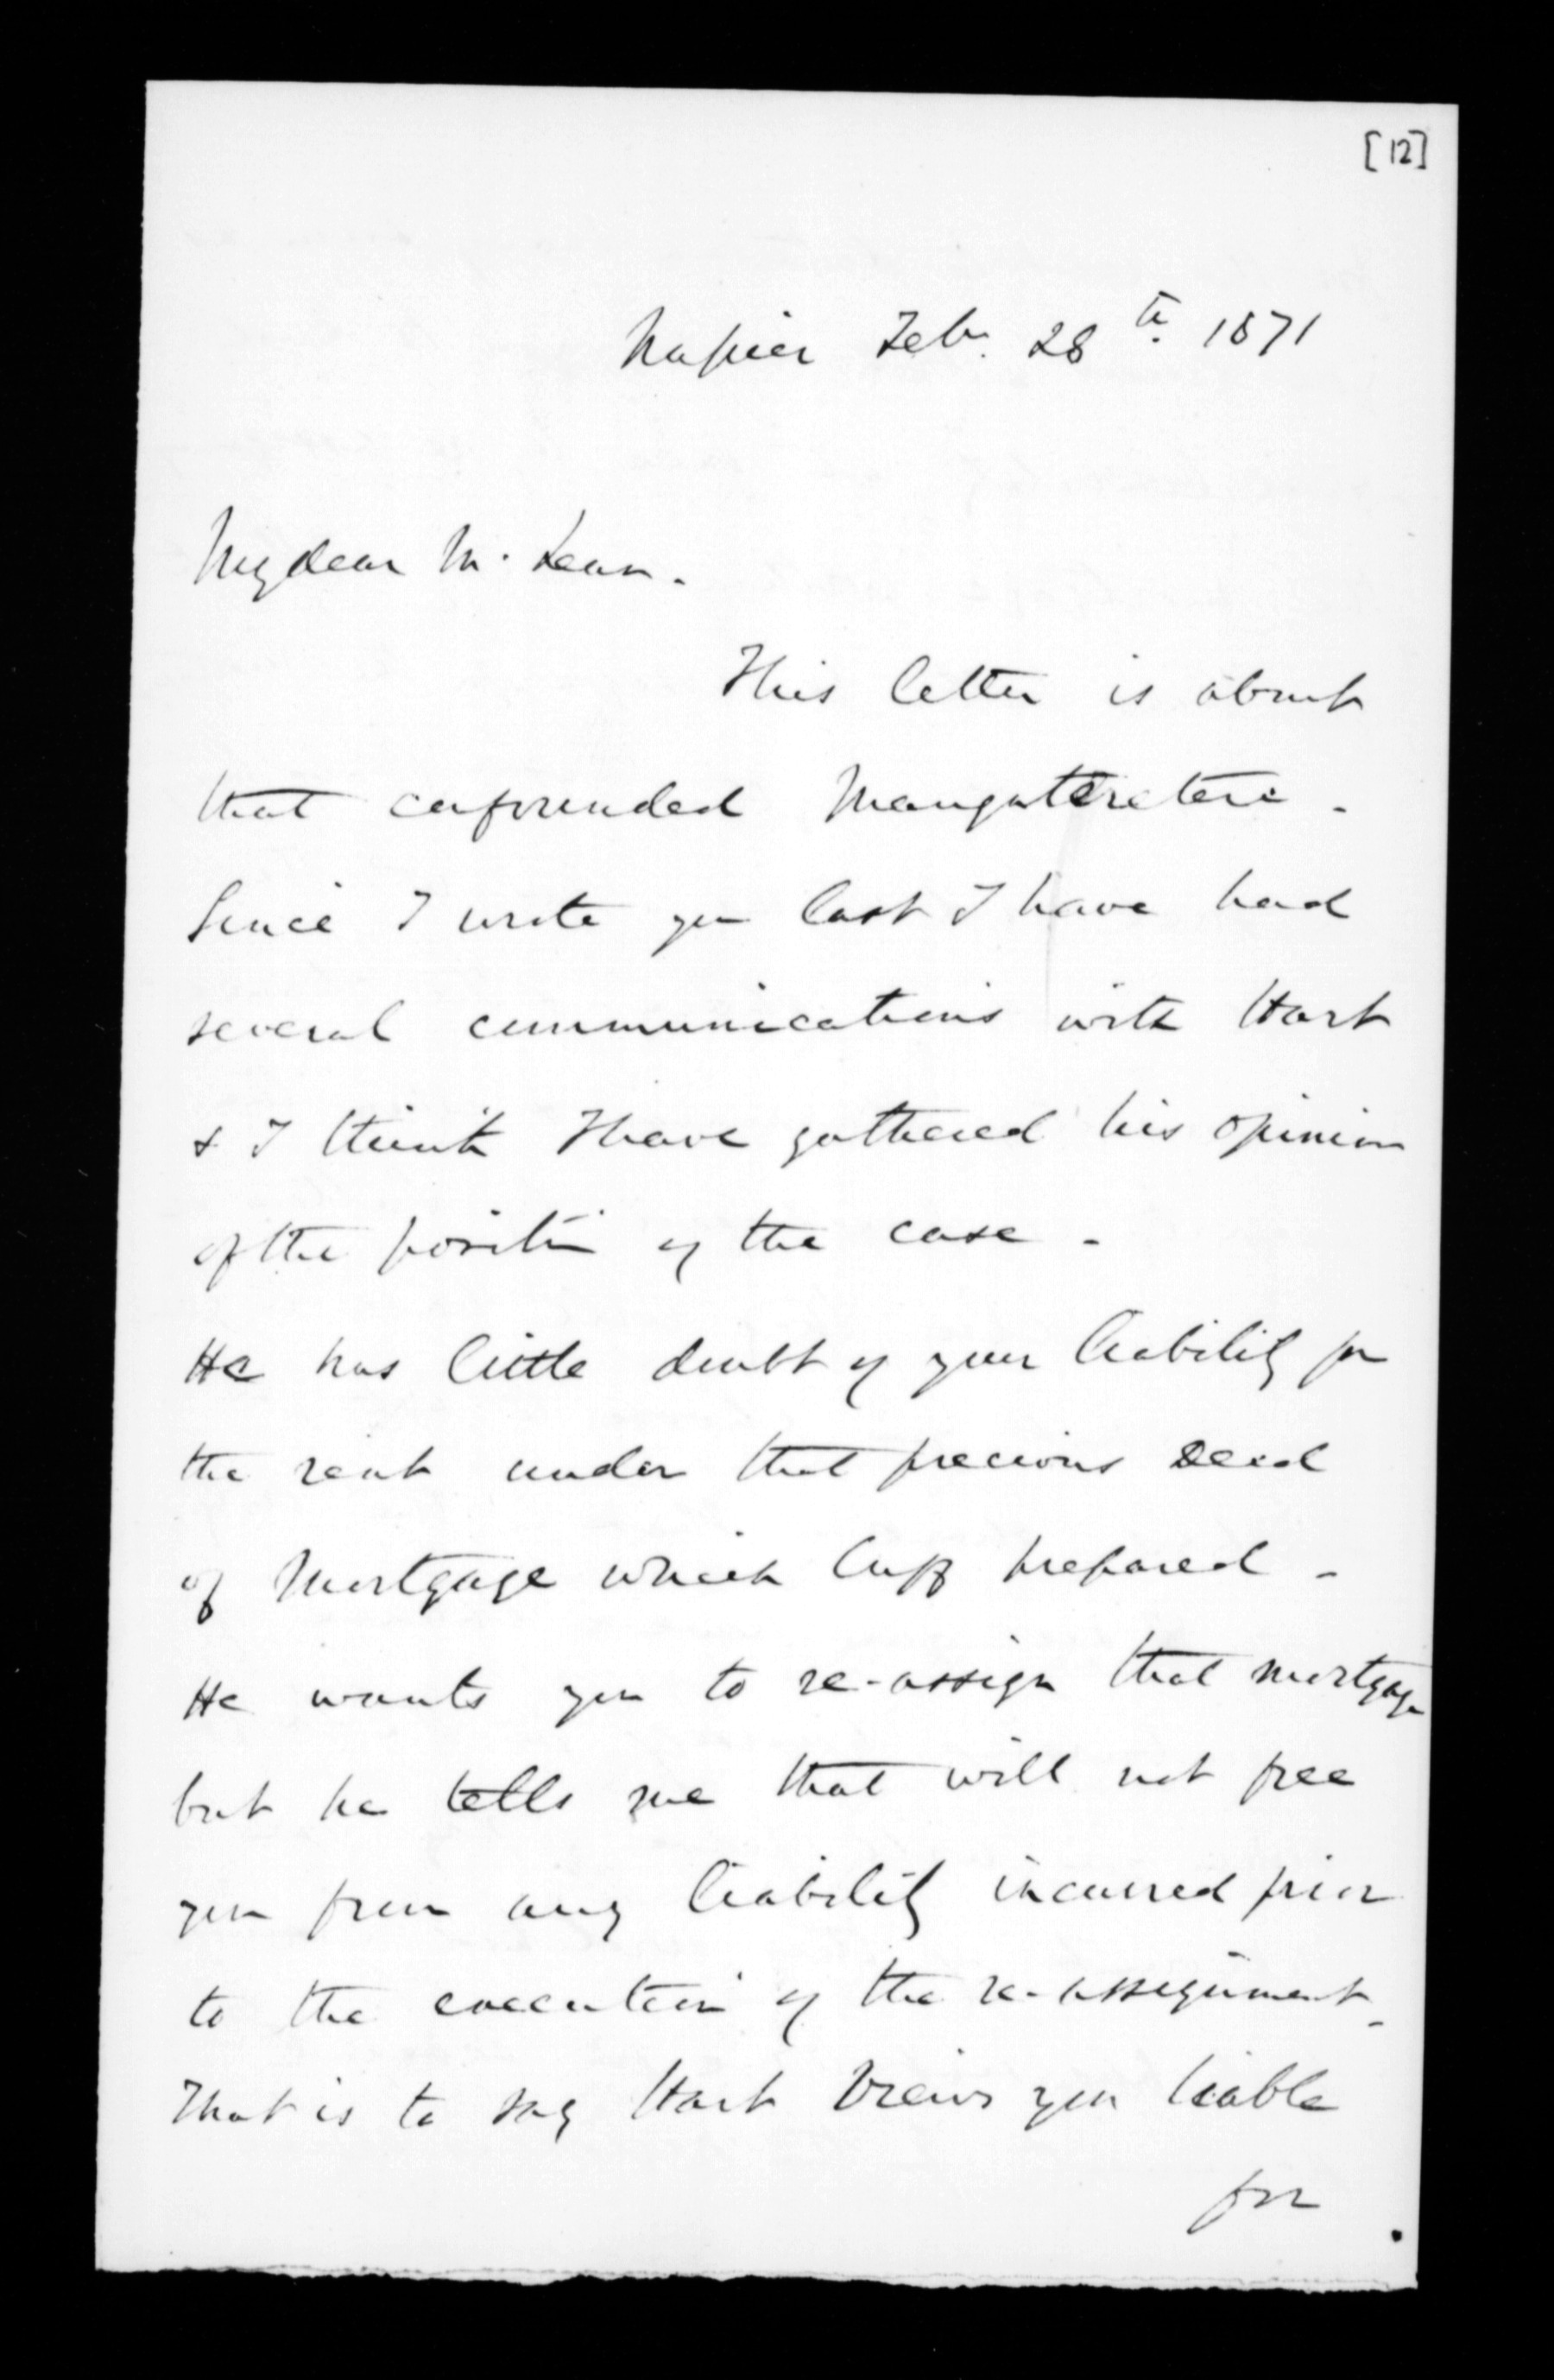 [12]
Napier Feb. 28th. 1871
My dear McLean.
This letter is about
that confounded Mangateretere -
Since I wrote you last I have had
several communications with Hart
& I think I have gathered his opinion
of the position of the case -
He has little doubt of your liability for
the rent under that precious Deed
of Mortgage which Cuff prepared -
He wants you to re-assign that mortgage
but he tells me that will not free
you from any liability incurred prior
to the execution of the re-assignment -
That is to say Hart views you liable
for